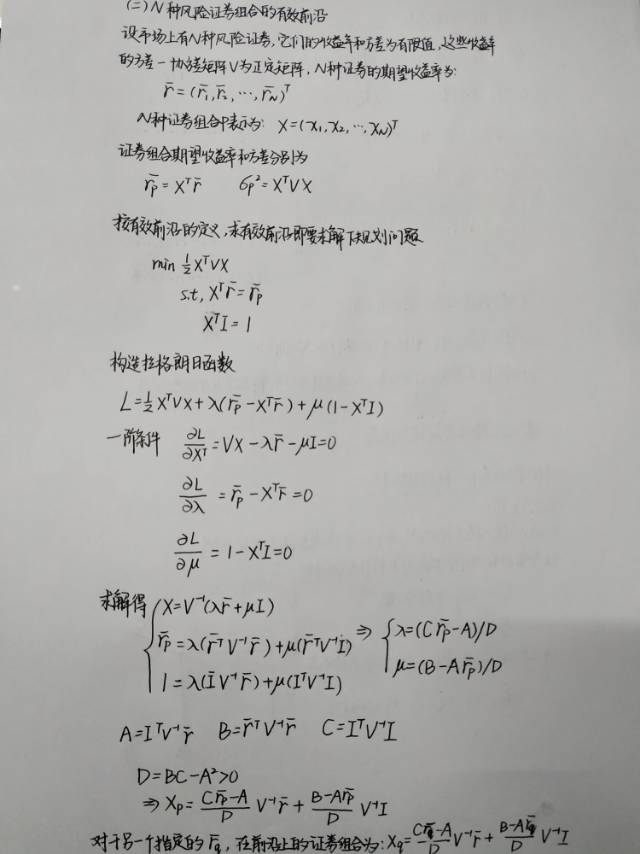 (二) N种风险证券组合的有效前沿
设市场上有N种风险证券,它们的收益率和方差为有限值,这些收益率
的方差一协方差矩阵V为正定矩阵,N种证券的期望收益率为:
r̄=(r̄₁,r̄₂,…,r̄_N)ᵀ
N种证券组合P表示为: X=(x₁,x₂,…,x_N)ᵀ
证券组合期望收益率和方差分别为
r̄p=Xᵀr̄  σp²=XᵀVX
按有效前沿的定义,求有效前沿即要求解下规划问题
min ½XᵀVX
s.t, Xᵀr̄=r̄p
XᵀI=1
构造拉格朗日函数
L=½XᵀVX+λ(r̄p-Xᵀr̄)+μ(1-XᵀI)
一阶条件 ∂L/∂Xᵀ=VX-λr̄-μI=0
∂L/∂λ=r̄p-Xᵀr̄=0
∂L/∂μ=1-XᵀI=0
求解得 { X=V⁻¹(λr̄+μI)
r̄p=λ(r̄ᵀV⁻¹r̄)+μ(r̄ᵀV⁻¹I) ⇒ { λ=(Cr̄p-A)/D
1=λ(IV⁻¹r̄)+μ(IᵀV⁻¹I)  μ=(B-Ar̄p)/D
A=IᵀV⁻¹r̄  B=r̄ᵀV⁻¹r̄  C=IᵀV⁻¹I
D=BC-A²>0
⇒ Xp=(Cr̄p-A)/D V⁻¹r̄+(B-Ar̄p)/D V⁻¹I
对于另一个指定的r̄q,在前沿上的证券组合为:Xq=(Cr̄q-A)/D V⁻¹r̄+(B-Ar̄q)/D V⁻¹I